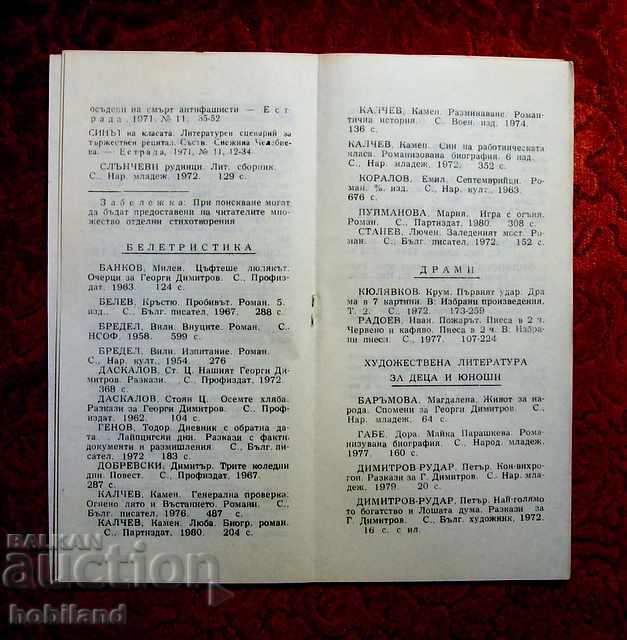 осъдени на смърт антифашисти — Е с т
р а д а, 1971, № 11, 35-52
СИНЪТ на класата. Литературен сценарий за
тържествен рецитал. Съств. Снежина Челебие-
ва. — Естрада, 1971, № 11, 12-34.
СЛЪНЧЕВИ рудници. Лит. сборник.
С., Нар. младеж. 1972. 129 с.
З а б е л е ж к а: При поискване могат
да бъдат предоставени на читателите мно-
жество отделни стихотворения
БЕЛЕТРИСТИКА
БАНКОВ, Милен. Цъфтеше люлякът.
Очерци за Георги Димитров. С., Профиз-
дат. 1963. 124 с.
БЕЛЕВ, Кръстю. Пробивът. Роман. 5.
изд. С., Бълг. писател, 1967. 288 с.
БРЕДЕЛ, Вили. Внуците. Роман. С.,
НСОФ, 1958. 599 с.
БРЕДЕЛ, Вили. Изпитание. Роман.
С., Нар. култ., 1954. 276
ДАСКАЛОВ, Ст. Ц. Нашият Георги Ди-
митров. Разкази. С., Профиздат. 1972.
368 с.
ДАСКАЛОВ, Стоян Ц. Осемте хляба.
Разкази за Георги Димитров. С., Проф-
издат, 1962. 104 с.
ГЕНОВ, Тодор. Дневник с обратна да-
та. Лайпцигски дни. Разкази с факти,
документи и размишления. С., Бълг. писа-
тел. 1972 183 с.
ДОБРЕВСКИ, Димитър. Трите коледни
дни. Повест. С., Профиздат, 1967.
287 с.
КАЛЧЕВ, Камен. Генерална проверка.
Огнено лято и Въстанието. Романи. С.,
Бълг. писател, 1976. 487 с.
КАЛЧЕВ, Камен. Люба. Биогр. роман.
С., Партиздат. 1980. 204 с.
КАЛЧЕВ, Камен. Разминаване. Роман-
тична история. С. Воен. изд. 1974.
136 с.
КАЛЧЕВ, Камен. Син на работническата
класа. Романизована биография. 6 изд.
С., Нар. младеж, 1972. 352 с.
КОРАЛОВ, Емил. Септемврийци. Ро-
ман. изд. С., Нар. култ., 1963.
676 с.
ПУЙМАНОВА. Мария. Игра с огъня.
Роман. С., Партиздат. 1980. 308 с.
СТАНЕВ, Лючен. Заледеният мост. Ро-
ман. С., Бълг. писател, 1972. 152 с.
ДРАМИ
КЮЛЯВКОВ, Крум. Първият удар. Дра
ма в 7 картини. В: Избрани произведения.
Т. 2. С., 1972. 173-259
РАДОЕВ, Иван. Пожарът. Пиеса в 2 ч.
Червено и кафяво. Пиеса в 2 ч. В: Избра-
ни пиеси. С., 1977. 107-224
ХУДОЖЕСТВЕНА ЛИТЕРАТУРА
ЗА ДЕЦА И ЮНОШИ
БАРЪМОВА, Магдалена. Живот за на-
рода. Спомени за Георги Димитров. С.,
Нар. младеж, 64 с.
ГАБЕ, Дора. Майка Парашкева. Рома-
низувана биография. С., Народ. младеж.
1977. 160 с.
ДИМИТРОВ-РУДАР, Петър. Кон-вихро-
гон. Разкази за Г. Димитров. С., Нар. мла-
деж, 1979. 20 с.
ДИМИТРОВ-РУДАР, Петър. Най-голямо
то богатство и Лошата дума. Разкази за
Г. Димитров. С., Бълг. художник, 1972.
16 с. с ил.
BALKAN
auction
hobiland